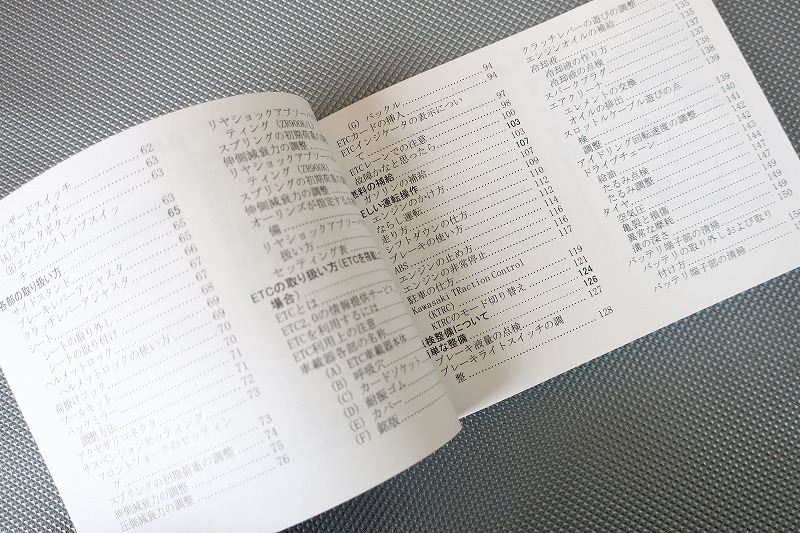 ハザードスイッチ 62
ンドルスイッチ 63
(A)スタータボタン 63
(B)エンジンストップスイッ
チ 63
各部の取り扱い方 65
サイドスタンド 65
ブレーキレバーアジャスタ 66
クラッチレバーアジャスタ 67
シート 67
シートの取り外し 68
シートの取り付け 69
ヘルメットロック 70
ヘルメットロックの使い方 70
荷掛けフック 71
ツールキット 71
バックミラー 72
調整方法 73
アクセサリコネクタ 73
サスペンションセッティング 74
フロントフォークのセッティン
グ 75
スプリングの初期荷重の調整 76
伸側減衰力の調整
圧側減衰力の調整
リヤショックアブソーバ
ティング(ZR900R/
スプリングの初期荷重の
伸側減衰力の調整
リヤショックアブソーバ
ティング(ZR900R
スプリングの初期荷重
伸側減衰力の調整
オーリンズが指定する
備
リヤショックアブソ
扱い方
セッティング表
ETCの取り扱い方(ETCを搭載
場合)
ETCとは
ETC2.0の情報提供サービ
ETCを利用するには
ETC利用上の注意
車載器各部の名称
(A) ETC車載器本体
(B) 呼吸穴
(C) カードソケット
(D) 耐振ゴム
(E) カバー
(F) 銘版
(G) バックル 94
ETCカードの挿入 94
ETCインジケータの表示につい
て 97
ETCレーンでの注意 98
故障かなと思ったら 100
燃料の補給 103
ガソリンの補給 103
正しい運転操作 107
エンジンのかけ方 107
ならし運転 109
走り方 110
シフトダウンの仕方 112
ブレーキの使い方 112
ABS 114
エンジンの止め方 116
エンジンの非常停止 116
駐車の仕方 117
Kawasaki TRaction Control
(KTRC) 119
KTRCのモード切り替え 121
点検整備について 124
簡単な整備 126
ブレーキ液量の点検 127
ブレーキライトスイッチの調
整 128
クラッチレバーの遊びの調整 135
エンジンオイルの補給 135
冷却液 137
冷却液の作り方 137
冷却液の点検 138
スパークプラグ 138
エアクリーナ 139
エレメントの交換 139
オイルの排出 140
スロットルケーブル遊びの点
検 141
アイドリング回転速度の調整 142
ドライブチェーン 142
給油 142
たるみ点検 144
たるみ調整 147
タイヤ 147
空気圧 149
亀裂と損傷 149
異常な摩耗 149
溝の深さ 150
バッテリ端子部の清掃
バッテリの取り外しおよび取り
付け方
バッテリ端子部の清掃